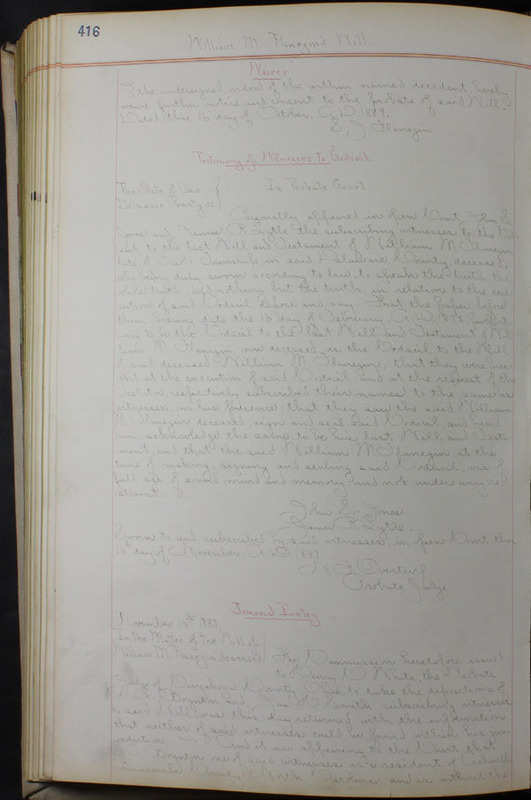 416
William M. Flanegin's Will
Waiver
I the undersigned, widow of the within named decedent, hereby
waive further notice and consent to the probate of said Will.
Dated this 16 day of October, A.D. 1889.
Flanegin
Testimony of Witnesses to Codicil.
The State of Ohio
Delaware County ss
In Probate Court.
Personally appeared in open Court, John S.
Jones and James R. Lytle the subscribing witnesses to the
to the last Will and Testament of William M. Flanegin
late of Township in said Delaware County, deceased,
who being duly sworn according to law, to speak the truth the
whole truth and nothing but the truth, in relation to the
of said Codicil depose and say: That the paper before
them, bearing date the 16 day of February A.D.
to be the Codicil to the last Will and Testament of
M. Flanegin now deceased, is the Codicil to the Will
of said deceased William M. Flanegin, that they were
at the execution of said Codicil and at the request of the
testator respectively subscribed their names to the same as
witnesses, in his presence; that they saw the said William
M. Flanegin deceased, sign and seal said Codicil, and heard
him acknowledge the same to be his last Will and
ment, and that the said William M. Flanegin at the
time of making, signing and sealing said Codicil, was of
full age of sound mind and memory and not under any re
straint.
John S. Jones
James R. Lytle
Sworn to and subscribed by said witnesses in open Court this
16 day of November A.D. 1889
Probate Judge
Journal Entry
November 16th 1889.
In the Matter of the Will of
William M. Flanegin deceased The Commission heretofore issued
to Henry C. White, the Probate
Judge of Cuyahoga County Ohio to take the depositions of
Boynton and Smith subscribing witnesses
to said Will, was this day returned with the information
that neither of said witnesses could be found within his juris
diction. And it now appearing to the Court that
Boynton one of said witnesses is a resident of Asheville
Buncombe County North Carolina and is without the